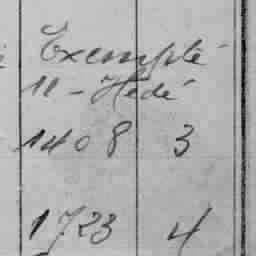 Exempté
11 - Hédé
1408 3
1723 4